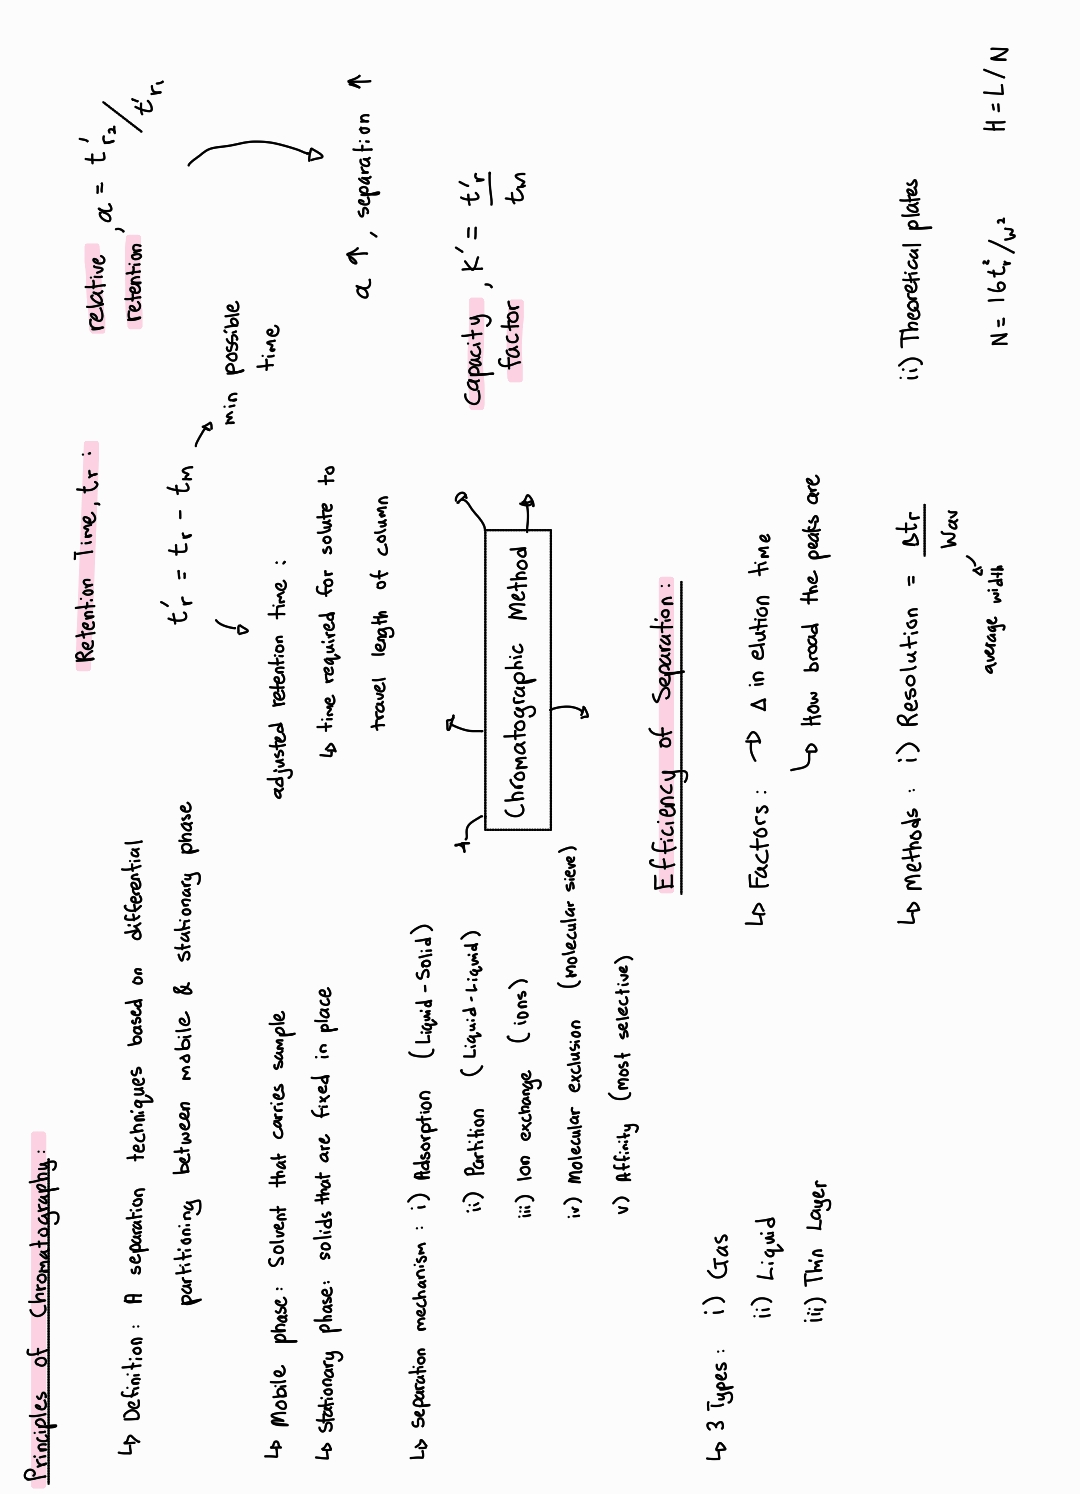 Principles of Chromatography:
↳ Definition: A separation techniques based on differential
partitioning between mobile & stationary phase
↳ Mobile phase: Solvent that carries sample
↳ Stationary phase: solids that are fixed in place
↳ Separation mechanism: i) Adsorption (Liquid-Solid)
ii) Partition (Liquid-Liquid)
iii) Ion exchange (ions)
iv) Molecular exclusion (molecular sieve)
v) Affinity (most selective)
↳ 3 Types: i) Gas
ii) Liquid
iii) Thin Layer
Retention Time, tr:
t'r = tr - tM
min possible
time
adjusted retention time:
↳ time required for solute to
travel length of column
relative
retention, a = t'r2/t'r1
a ↑, separation ↑
Chromatographic Method
Capacity
factor, K' = t'r/tM
Efficiency of Separation:
↳ Factors: → Δ in elution time
↳ How broad the peaks are
↳ Methods: i) Resolution = Δtr/Wav
average width
ii) Theoretical plates
N = 16tr²/w²
H = L/N